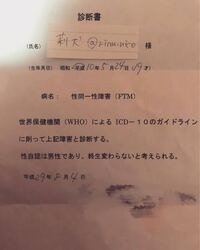 診断書
（氏名）
様
（生年月日） 昭和・平成10年5月24日19才）
病名： 性同一性障害（FTM）
世界保健機関（WHO）によるICD－10のガイドライン
に則って上記障害と診断する。
性自認は男性であり、終生変わらないと考えられる。
平成29年5月4日